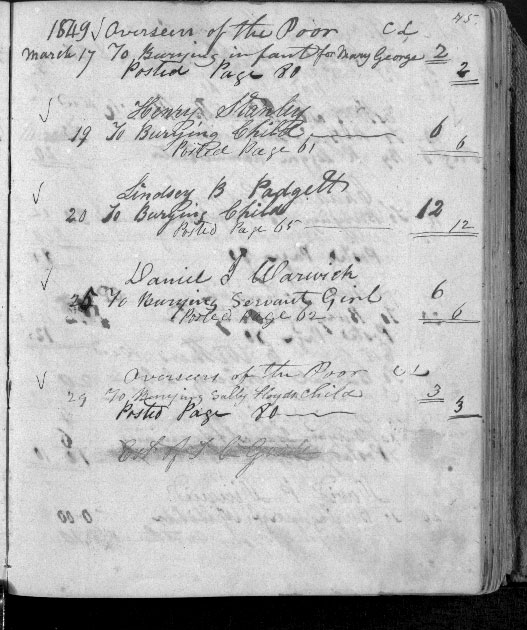 45
1849 ✓ Overseers of the Poor Cd
March 17 To Burying infant for Mary George 2
Posted Page 80 2
✓ Henry Stanley
19 To Burying Child 6
Posted Page 61 6
✓ Lindsey B Padgett
20 To Burying Child 12
Posted Page 65 12
✓ Daniel J Warwick
25 To Burying Servant Girl 6
Posted Page 62 6
✓ Overseers of the Poor Cd
29 To Burying Sally Floyds Child 3
Posted Page 80 3